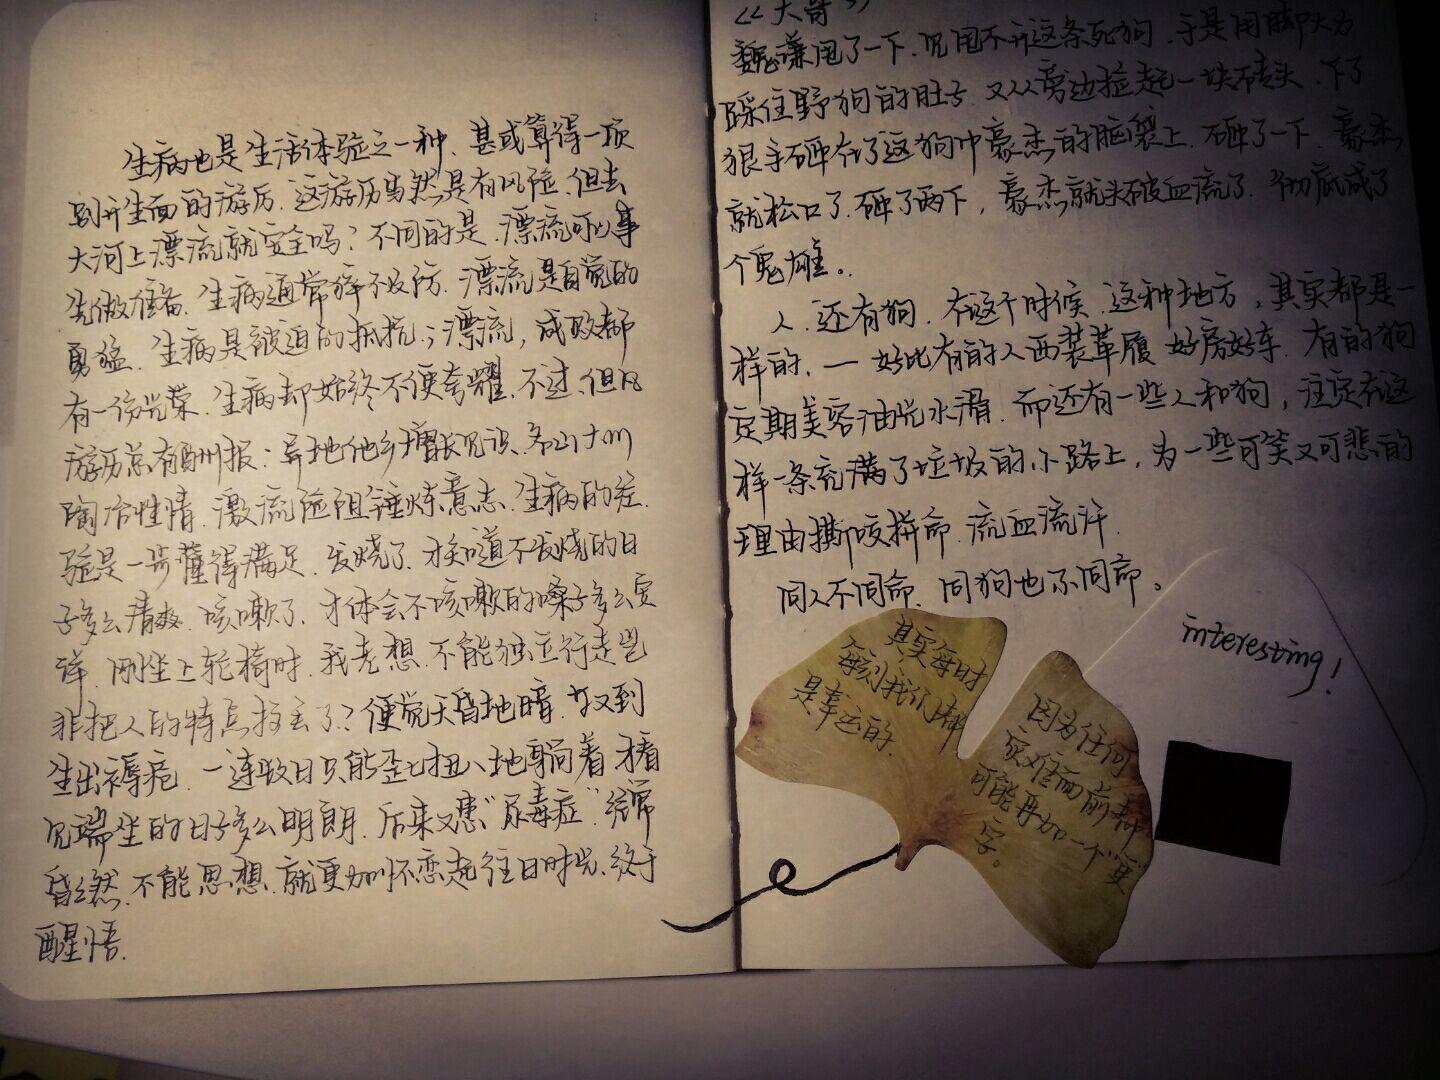 生病也是生活体验之一种、甚或算得一项
别开生面的游历.这游历当然是有风险、但去
大河上漂流就安全吗?不同的是、漂流可以事
先做准备、生病通常猝不及防.漂流是自觉的
勇猛、生病是被迫的抵抗;漂流,成败都
有一份光荣、生病却始终不便夸耀、不过、但凡
游历总有酬报:异地他乡增长见识、名山大川
陶冶性情、激流险阻锤炼意志、生病的经
验是一步步懂得满足、发烧了、才知道不发烧的日
子多么清爽、咳嗽了、才体会不咳嗽的嗓子多么安
详、刚坐上轮椅时、我老想、不能独立行走岂
非把人的特点搞丢了?便觉天昏地暗.等又到
生出褥疮、一连数日只能歪七扭八地躺着、才看
见端坐的日子多么明朗.后来又患“尿毒症”经常
昏昏然、不能思想、就更加怀恋起往日时光、终于
醒悟.
<<大哥>>
魏谦甩了一下、见甩不开这条死狗、于是用脚大力
踩住野狗的肚子、又从旁边捡起一块砖头、下了
狠手砸在了这狗中豪杰的脑袋上、砸了一下、豪杰
就松口了、砸了两下,豪杰就头破血流了、彻底成了
个鬼雄。
人、还有狗、在这个时候、这种地方,其实都是一
样的、一好比有的人西装革履 好房好车、有的狗
定期美容油光水滑、而还有一些人和狗,注定在这
样一条充满了垃圾的小路上,为一些可笑又可悲的
理由撕咬拼命、流血流汗.
同人不同命、同狗也不同命。
interesting!
其实每时
每刻我们都
是幸运的.
因为任何
灾难面前都
可能再加一个“更”
字。